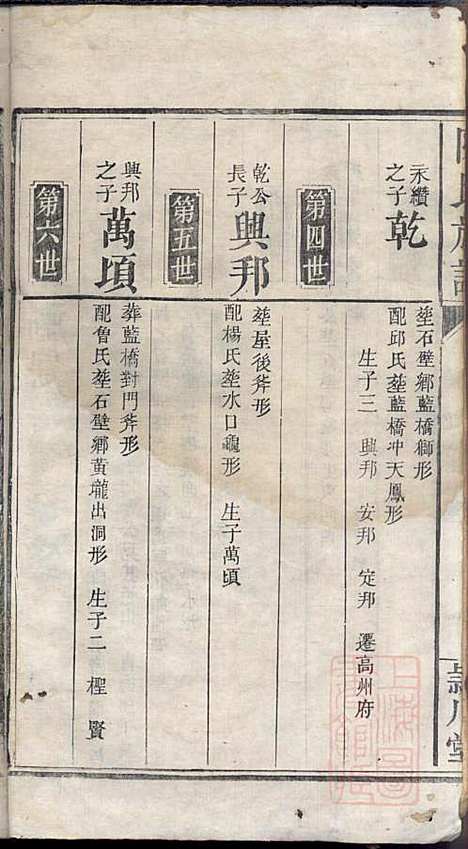 永纘
之子
乾
塟石壁鄉藍橋獅形
配邱氏塟藍橋冲天鳳形
生子三 興邦 安邦 定邦 遷高州府
第四世
乾公
長子
興邦
塟屋後斧形
配楊氏塟水口龜形 生子萬頃
第五世
興邦
之子
萬頃
葬藍橋對門斧形
配魯氏塟石壁鄉黃龍出洞形 生子二 檉 賢
第六世